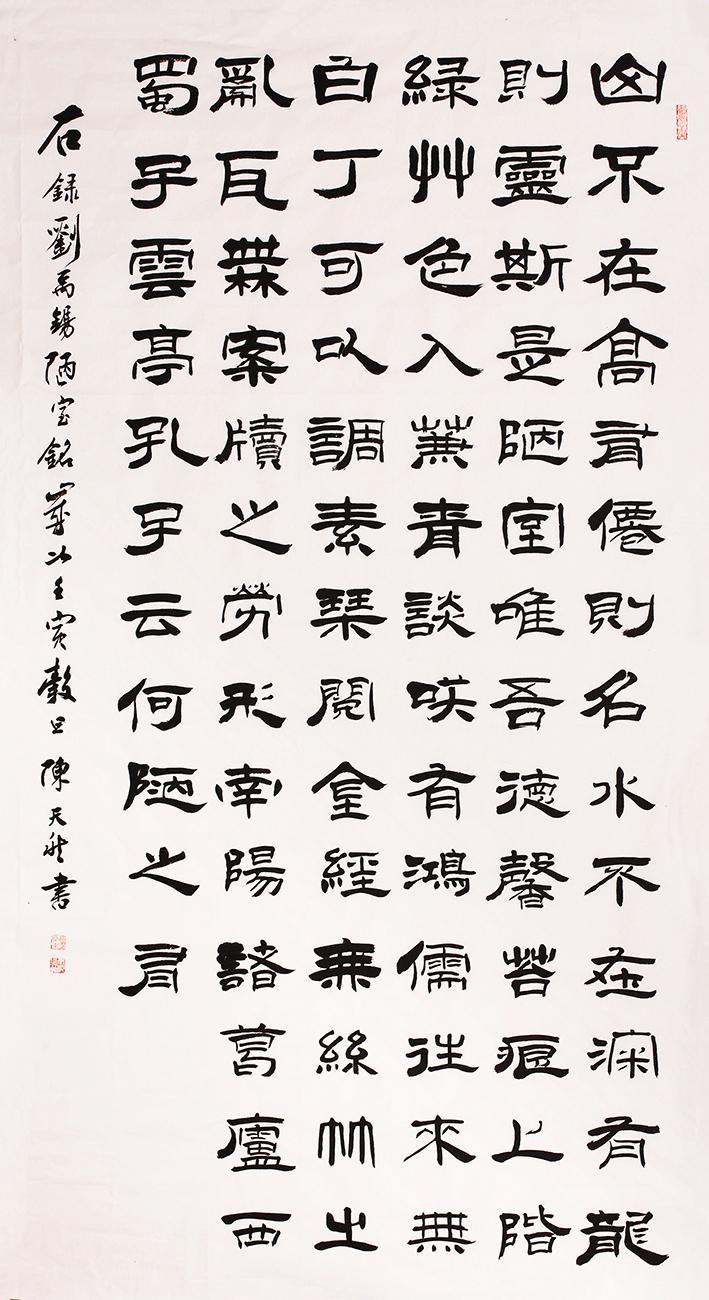 山不在高有僊則名水不在深有龍
則靈斯是陋室唯吾德馨苔痕上階
緑艸色入簾青談咲有鴻儒往來無
白丁可以調素琴閲金經無絲竹之
亂耳無案牘之勞形南陽諸葛廬西
蜀子雲亭孔子云何陋之有
右録劉禹錫陋室銘歲次壬寅穀旦陳天書